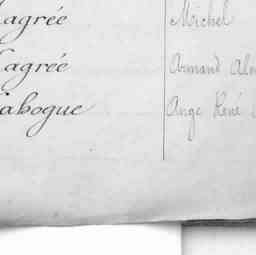 Lagrée Michel
Lagrée Armand
Labogue Ange René